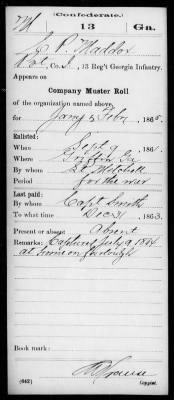 (Confederate.)
M 13 Ga.
J. P. Maddox
Co. I, 13 Reg't Georgia Infantry.
Appears on
Company Muster Roll
of the organization named above,
for Jany & Feby, 1865.
Enlisted:
When Sept 9, 186
Where Griffin Ga
By whom Lt Mitchell
Period for the war
Last paid:
By whom Capt Smith
To what time Dec 31, 1863.
Present or absent Absent
Remarks: Captured July 9 1864
at home on furlough
Book mark:
(642) Copyist.